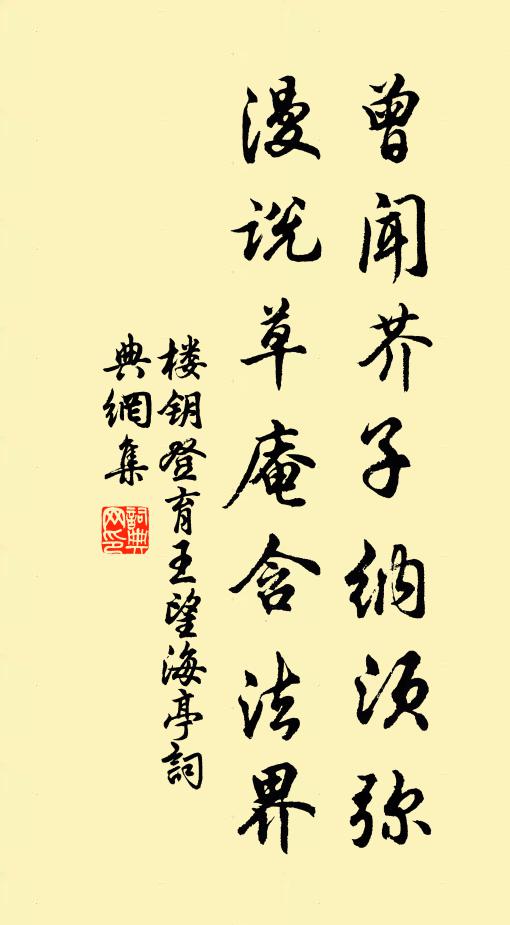 曾闻芥子纳须弥
漫说草庵含法界
楼钥登育王望海亭詞
典網集
詞典
网印